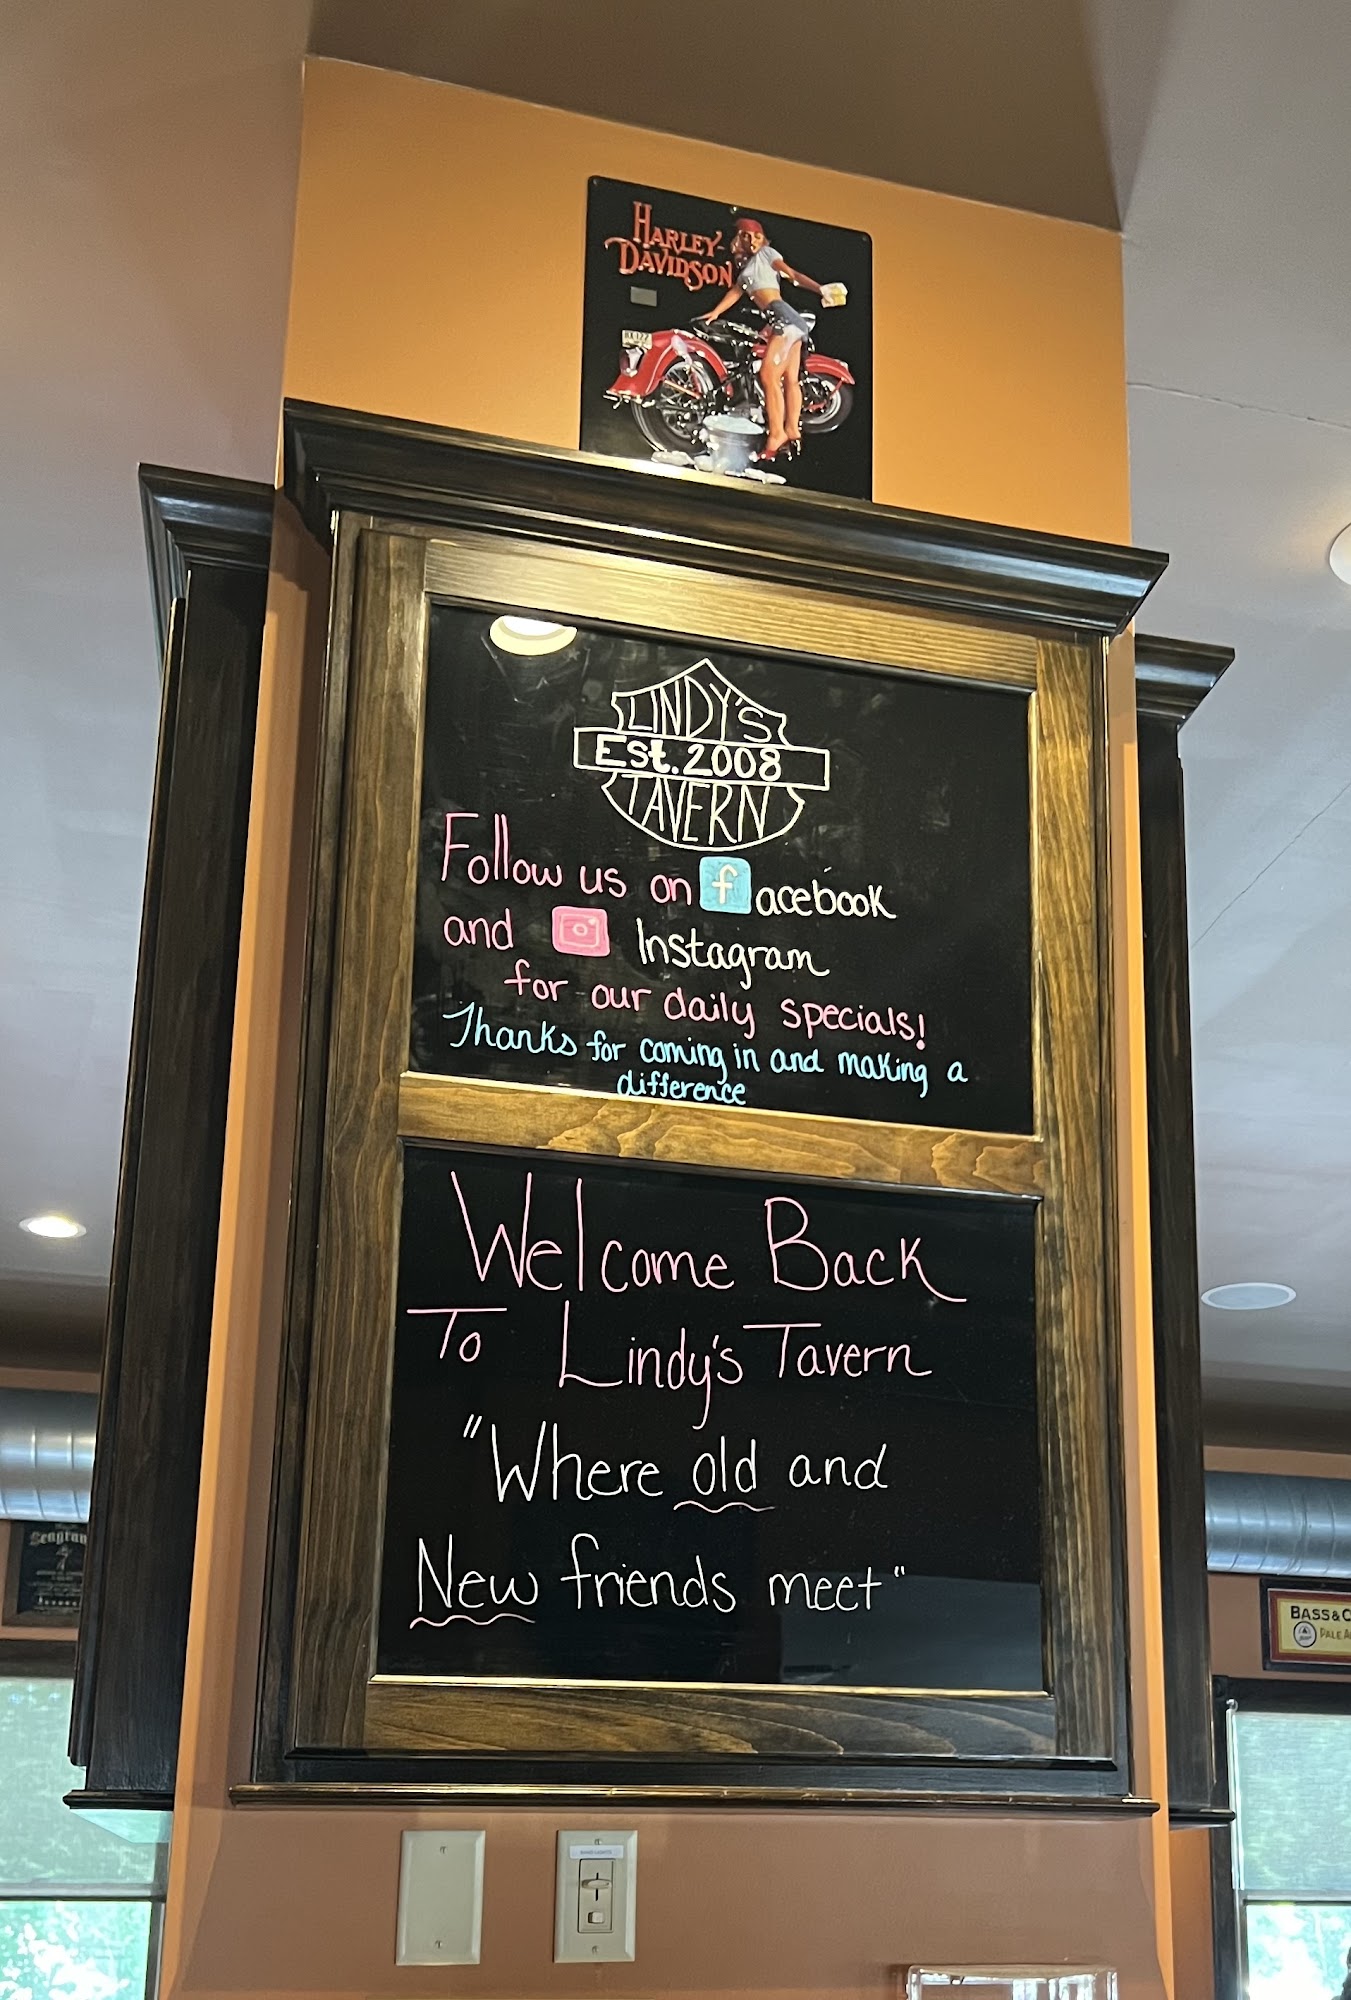 HARLEY-
DAVIDSON
LINDY'S
Est. 2008
TAVERN
Follow us on facebook
and Instagram
for our daily specials!
Thanks for coming in and making a
difference
Welcome Back
To Lindy's Tavern
"Where old and
New friends meet"
Seagram
7
BASS & C
PALE A